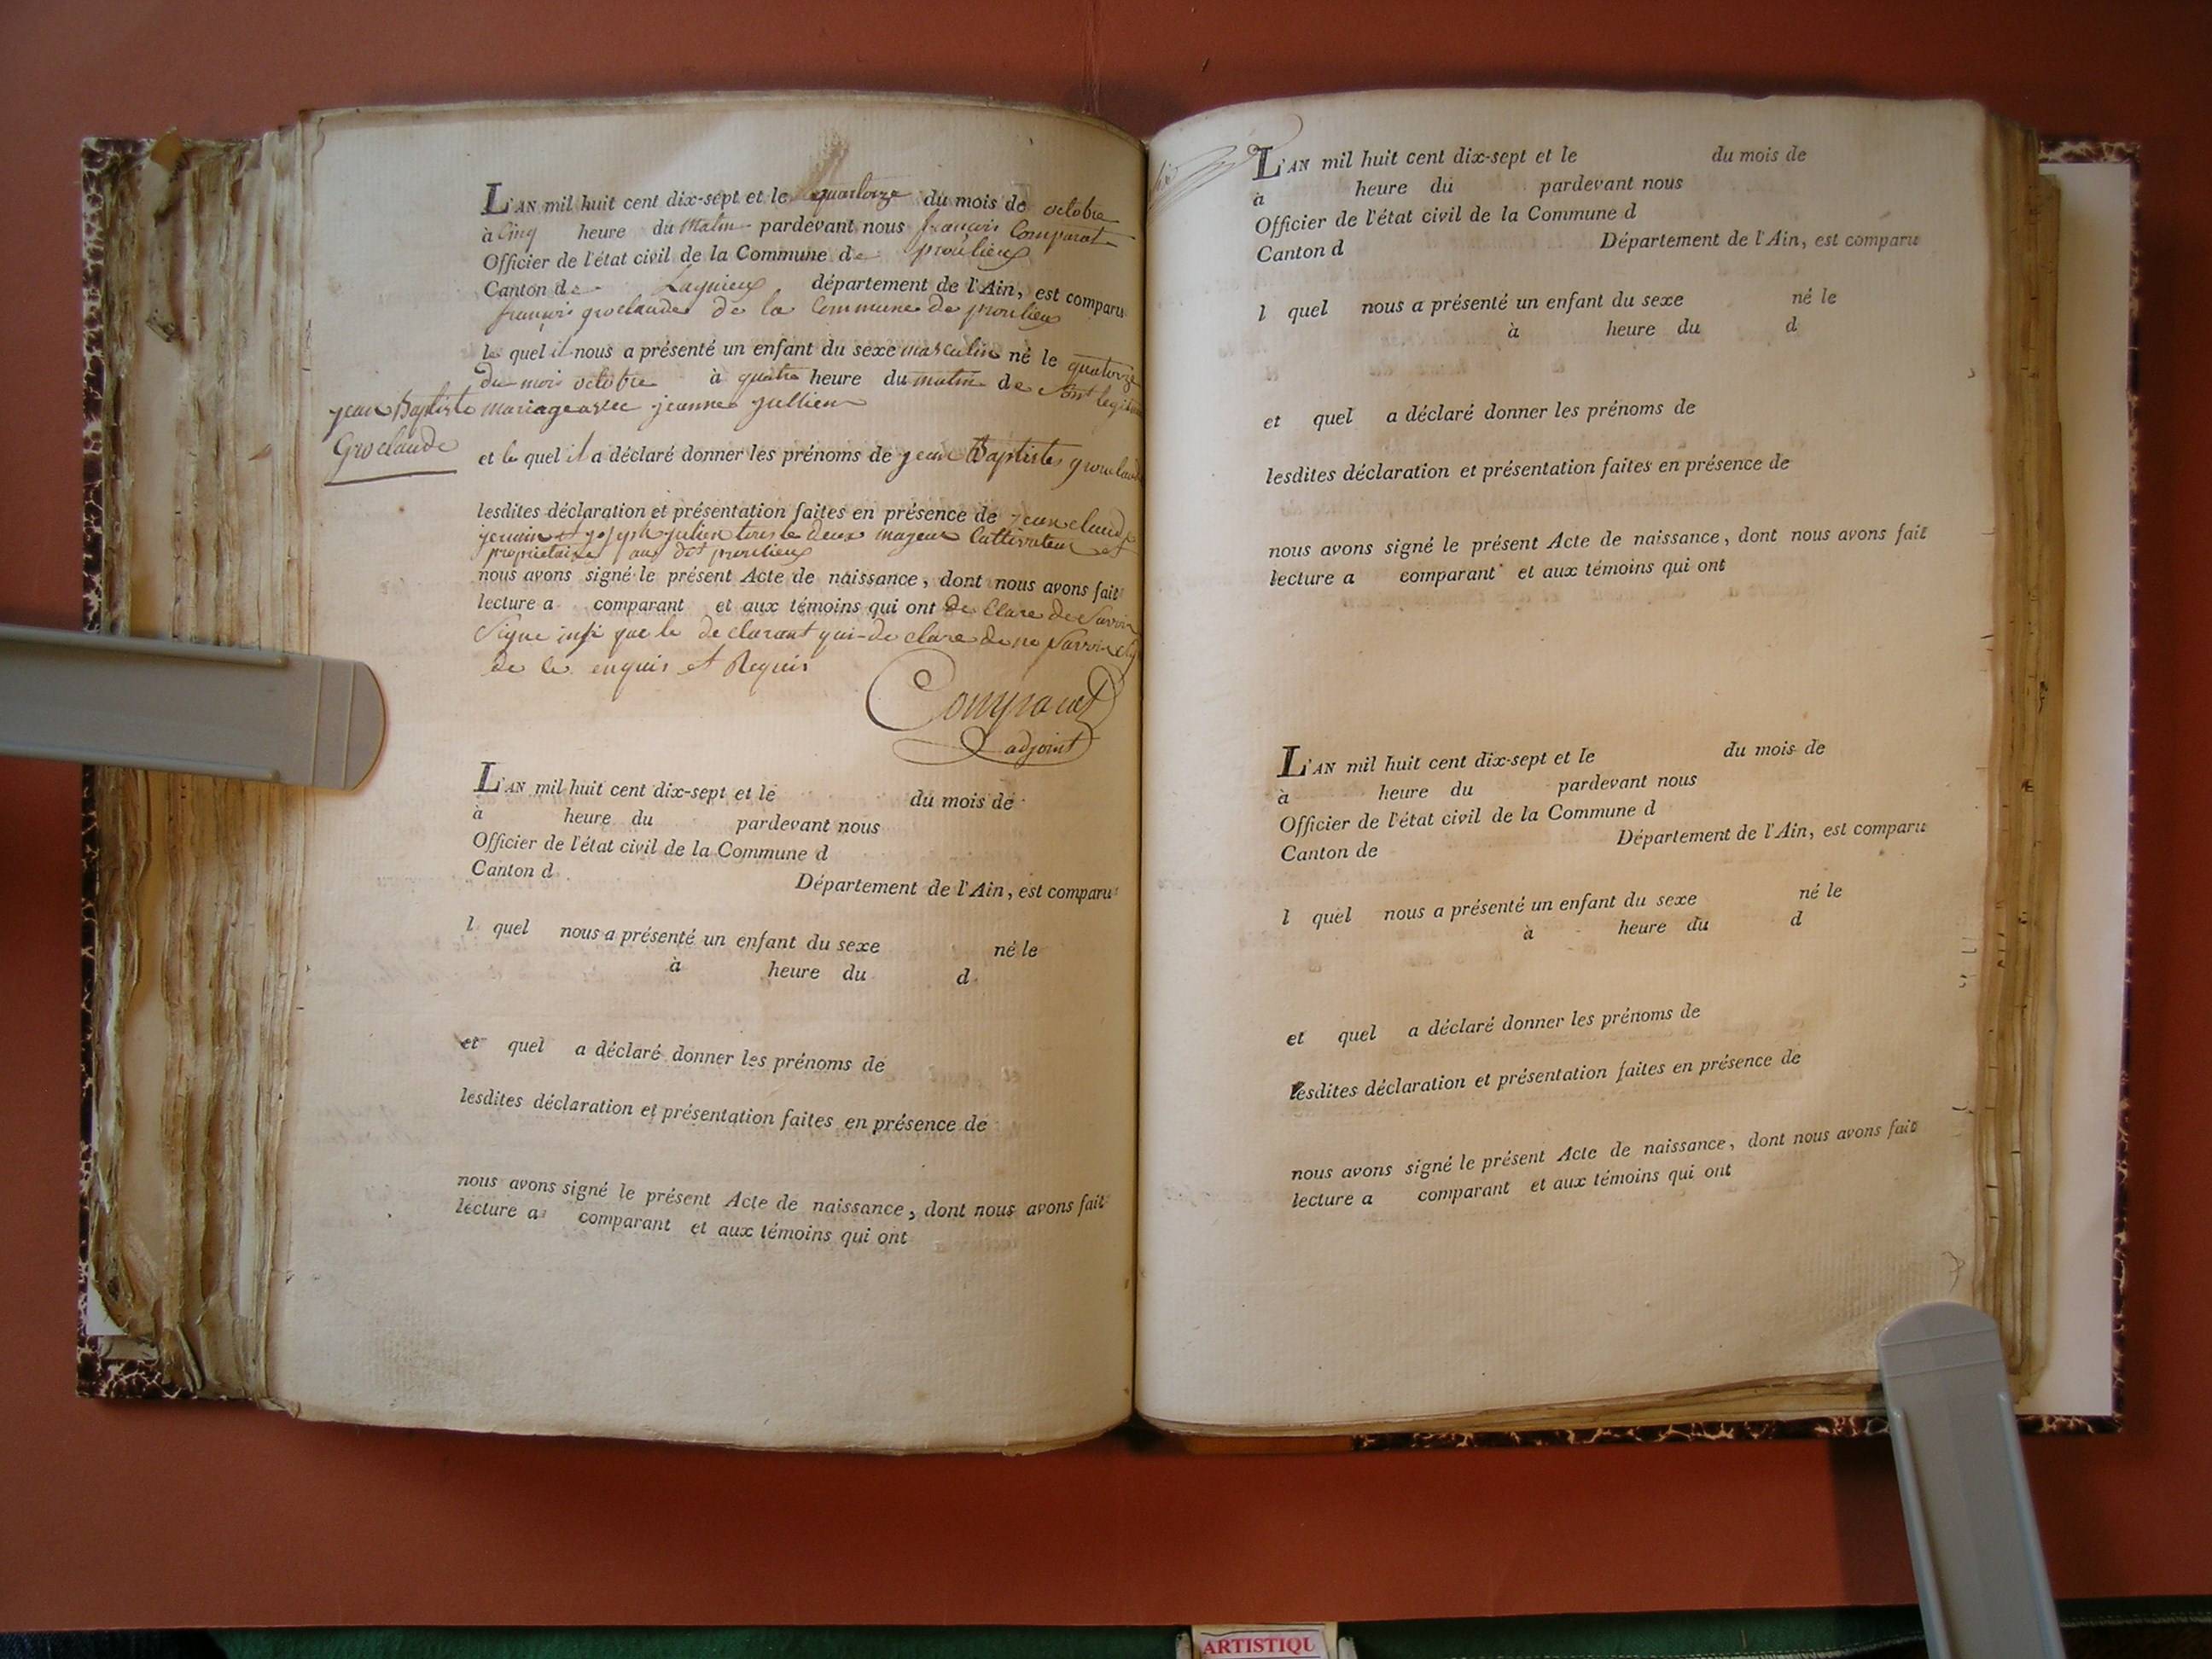 L'AN mil huit cent dix-sept et le quartorze du mois de octobre
à Cinq heure du Matin pardevant nous françois Comparat
Officier de l'état civil de la Commune de proulieu
Canton de Lagnieu département de l'Ain, est comparu
françois groclaude de la Commune de proulieu
le quel il nous a présenté un enfant du sexe masculin né le quatorze
du mois octobre à quatre heure du matin de Son legitime
mariage avec jeanne jullien
jean Baptiste
Groclaude
et le quel il a déclaré donner les prénoms de jean Baptiste grouclaude
lesdites déclaration et présentation faites en présence de jean claude
et joseph julien tous le deux majeur Cultivateur et
proprietaire au dit proulieu
nous avons signé le présent Acte de naissance, dont nous avons fait
lecture a comparant et aux témoins qui ont de Clare de Savoir
Signe que le de clarant qui de clare de ne Savoir
de ce enquis et Requis
Comparat
adjoint
L'AN mil huit cent dix-sept et le du mois de
à heure du pardevant nous
Officier de l'état civil de la Commune d
Canton d Département de l'Ain, est comparu
l quel nous a présenté un enfant du sexe né le
à heure du d
et quel a déclaré donner les prénoms de
lesdites déclaration et présentation faites en présence de
nous avons signé le présent Acte de naissance, dont nous avons fait
lecture a comparant et aux témoins qui ont
L'AN mil huit cent dix-sept et le du mois de
à heure du pardevant nous
Officier de l'état civil de la Commune d
Canton d Département de l'Ain, est comparu
l quel nous a présenté un enfant du sexe né le
à heure du d
et quel a déclaré donner les prénoms de
lesdites déclaration et présentation faites en présence de
nous avons signé le présent Acte de naissance, dont nous avons fait
lecture a comparant et aux témoins qui ont
L'AN mil huit cent dix-sept et le du mois de
à heure du pardevant nous
Officier de l'état civil de la Commune d
Canton de Département de l'Ain, est comparu
l quel nous a présenté un enfant du sexe né le
à heure du d
et quel a déclaré donner les prénoms de
lesdites déclaration et présentation faites en présence de
nous avons signé le présent Acte de naissance, dont nous avons fait
lecture a comparant et aux témoins qui ont
ARTISTIQU